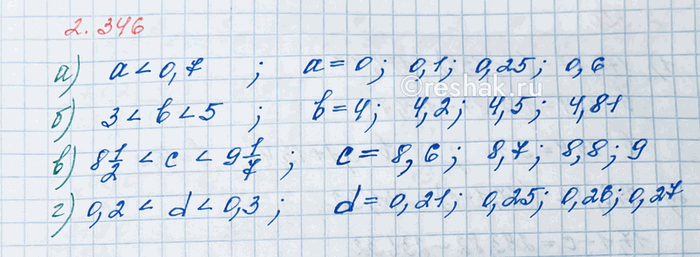 2.346
а) a < 0,7 ; a = 0; 0,1; 0,25; 0,6
©reshak.ru
б) 3 < b < 5 ; b = 4; 4,2; 4,5; 4,81
в) 8 1/2 < c < 9 1/7 ; c = 8,6; 8,7; 8,8; 9
г) 0,2 < d < 0,3 ; d = 0,21; 0,25; 0,26; 0,27